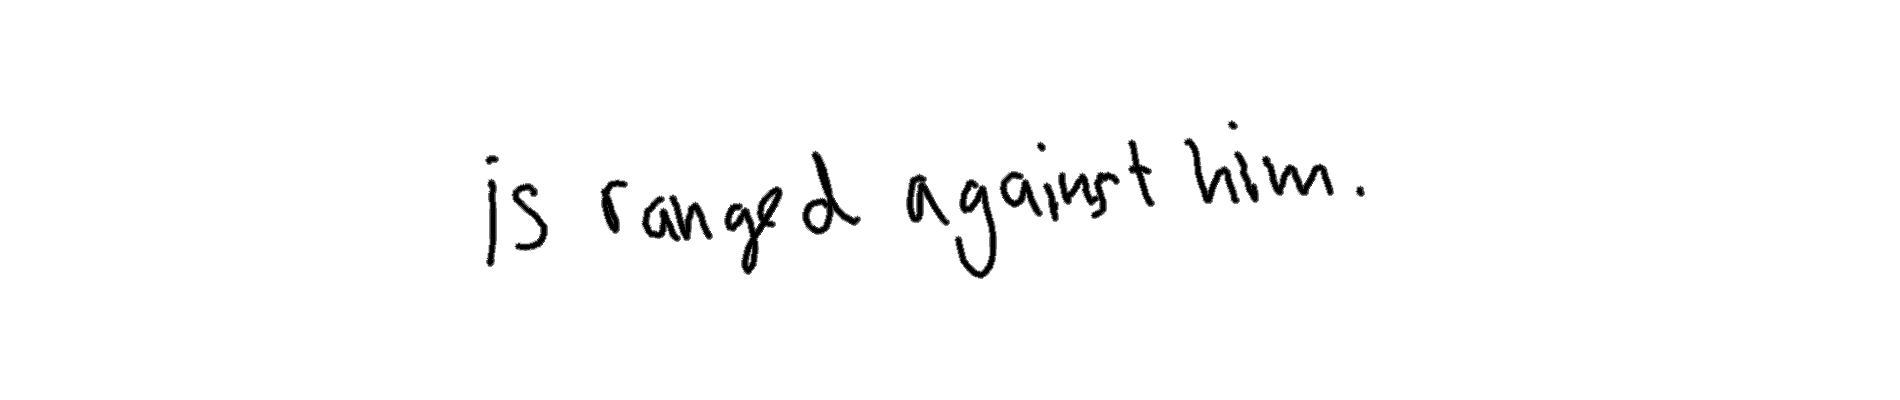 is ranged against him.